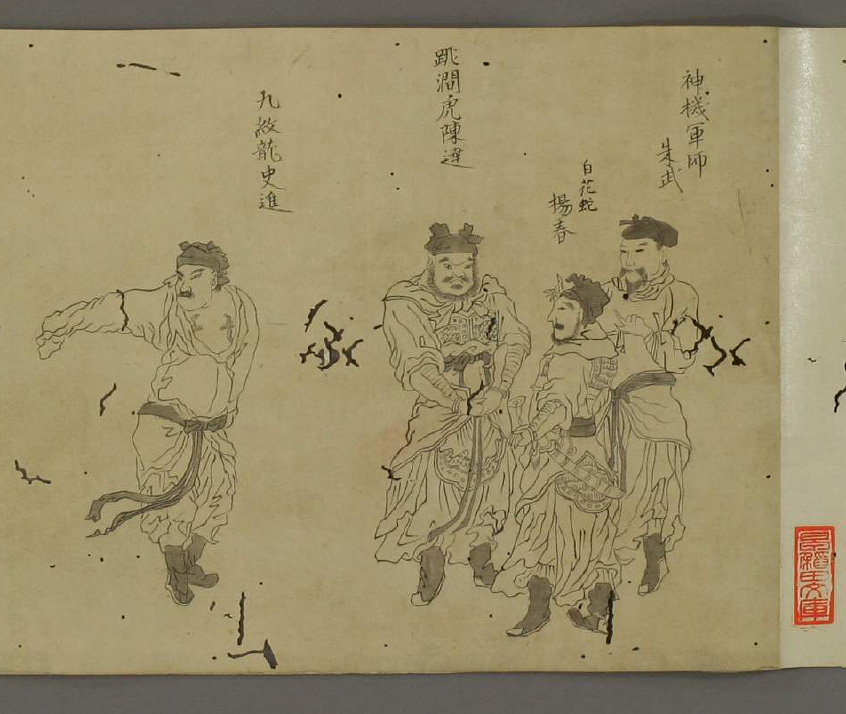 神機軍師
朱武
白花蛇
楊春
跳澗虎陳達
九紋龍史進